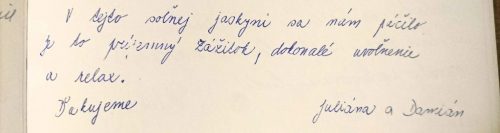 V tejto soľnej jaskyni sa nám páčilo
je to príjemný zážitok, dokonalé uvoľnenie
a relax.
Ďakujeme Juliána a Damián